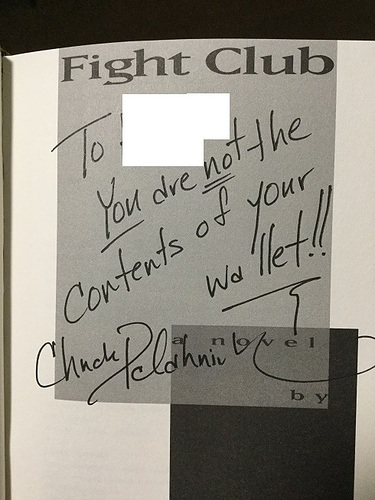 Fight Club
To
You are not the
contents of your
wallet!!
Chuck Palahniuk
a novel
by